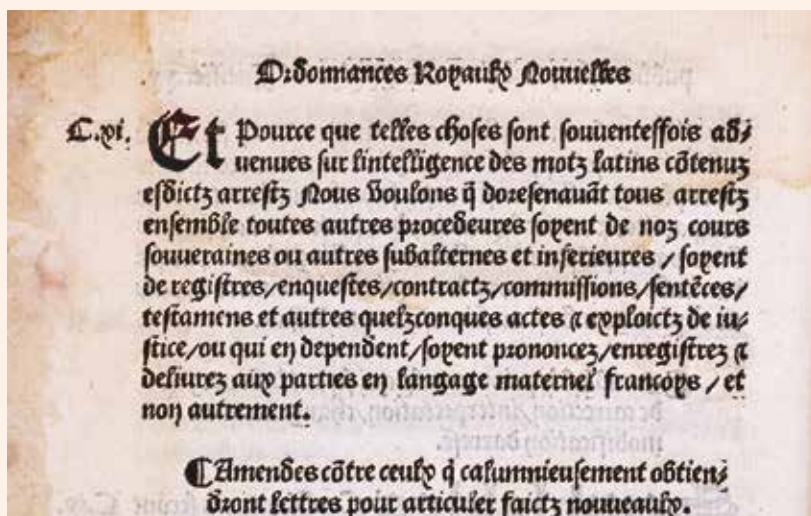 Ordonnances Royaulx Nouuelles
C.xi. Et Pource que telles choses sont souuenteffois ad/
uenues sur lintelligence des motz latins cõtenuz
esdictz arrestz Nous voulons q̃ doresenauãt tous arrestz
ensemble toutes autres procedeures soyent de noz cours
souueraines ou autres subalternes et inferieures / soyent
de registres/enquestes/contractz/commissions/sentẽces/
testamens et autres quelzconques actes ⁊ exploictz de iu/
stice/ou qui en dependent/soyent prononcez/enregistrez ⁊
deliurez aux parties en langage maternel francoys / et
non autrement.
¶Amendes cõtre ceulx q̃ calumnieusement obtien/
dront lettres pour articuler faictz nouueaulx.